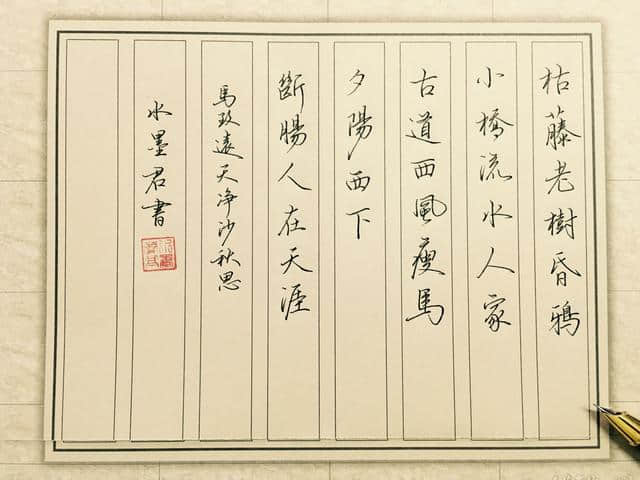 枯藤老樹昏鴉
小橋流水人家
古道西風瘦馬
夕陽西下
斷腸人在天涯
馬致遠天净沙秋思
水墨君書